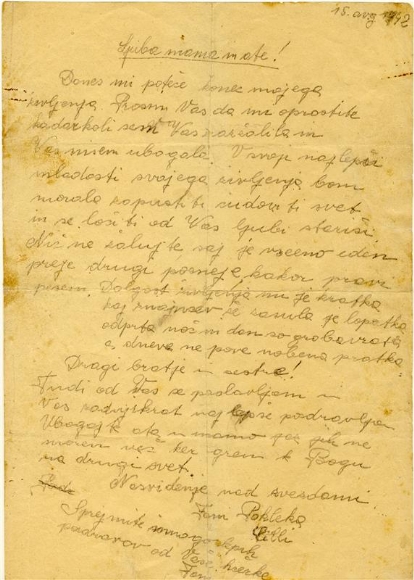 15. avg 1942
Ljuba mama in ate!
Danes mi poteče konec mojega
življenja Prosim Vas da mi oprostite
kadarkoli sem Vas razžalila in
Vas nisem ubogala. V svoji najlepši
mladosti svojega življenja bom
morala zapustiti ta svet
in se ločiti od Vas ljubi starši
Nič ne žalujte saj je vseeno eden
preje drugi pozneje, kakor pravi
pesem. Dolgost življenja mi je kratka
kaj znancev je zasula že lopatka
odprta noč in dan so groba vrata
a dneva ne pove nobena pratka
Dragi bratje in sestre!
Tudi od Vas se poslavljam in
Vas zadnjikrat najlepše pozdravljam
Ubogajte ata in mamo jaz jih ne
morem več ker grem k Bogu
na drugi svet.
Nasvidenje nad zvezdami
Sprejmite mnogo lepih
pozdravov od Vaše hčerke